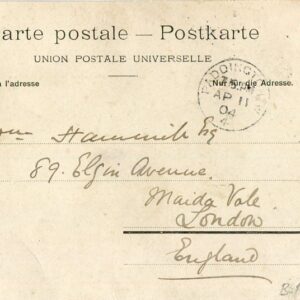 arte postale — Postkarte
UNION POSTALE UNIVERSELLE
à l'adresse
Nur für die Adresse
PADDINGTON
AP 11
04
Esq
89. Elgin Avenue.
Maida Vale.
London
England